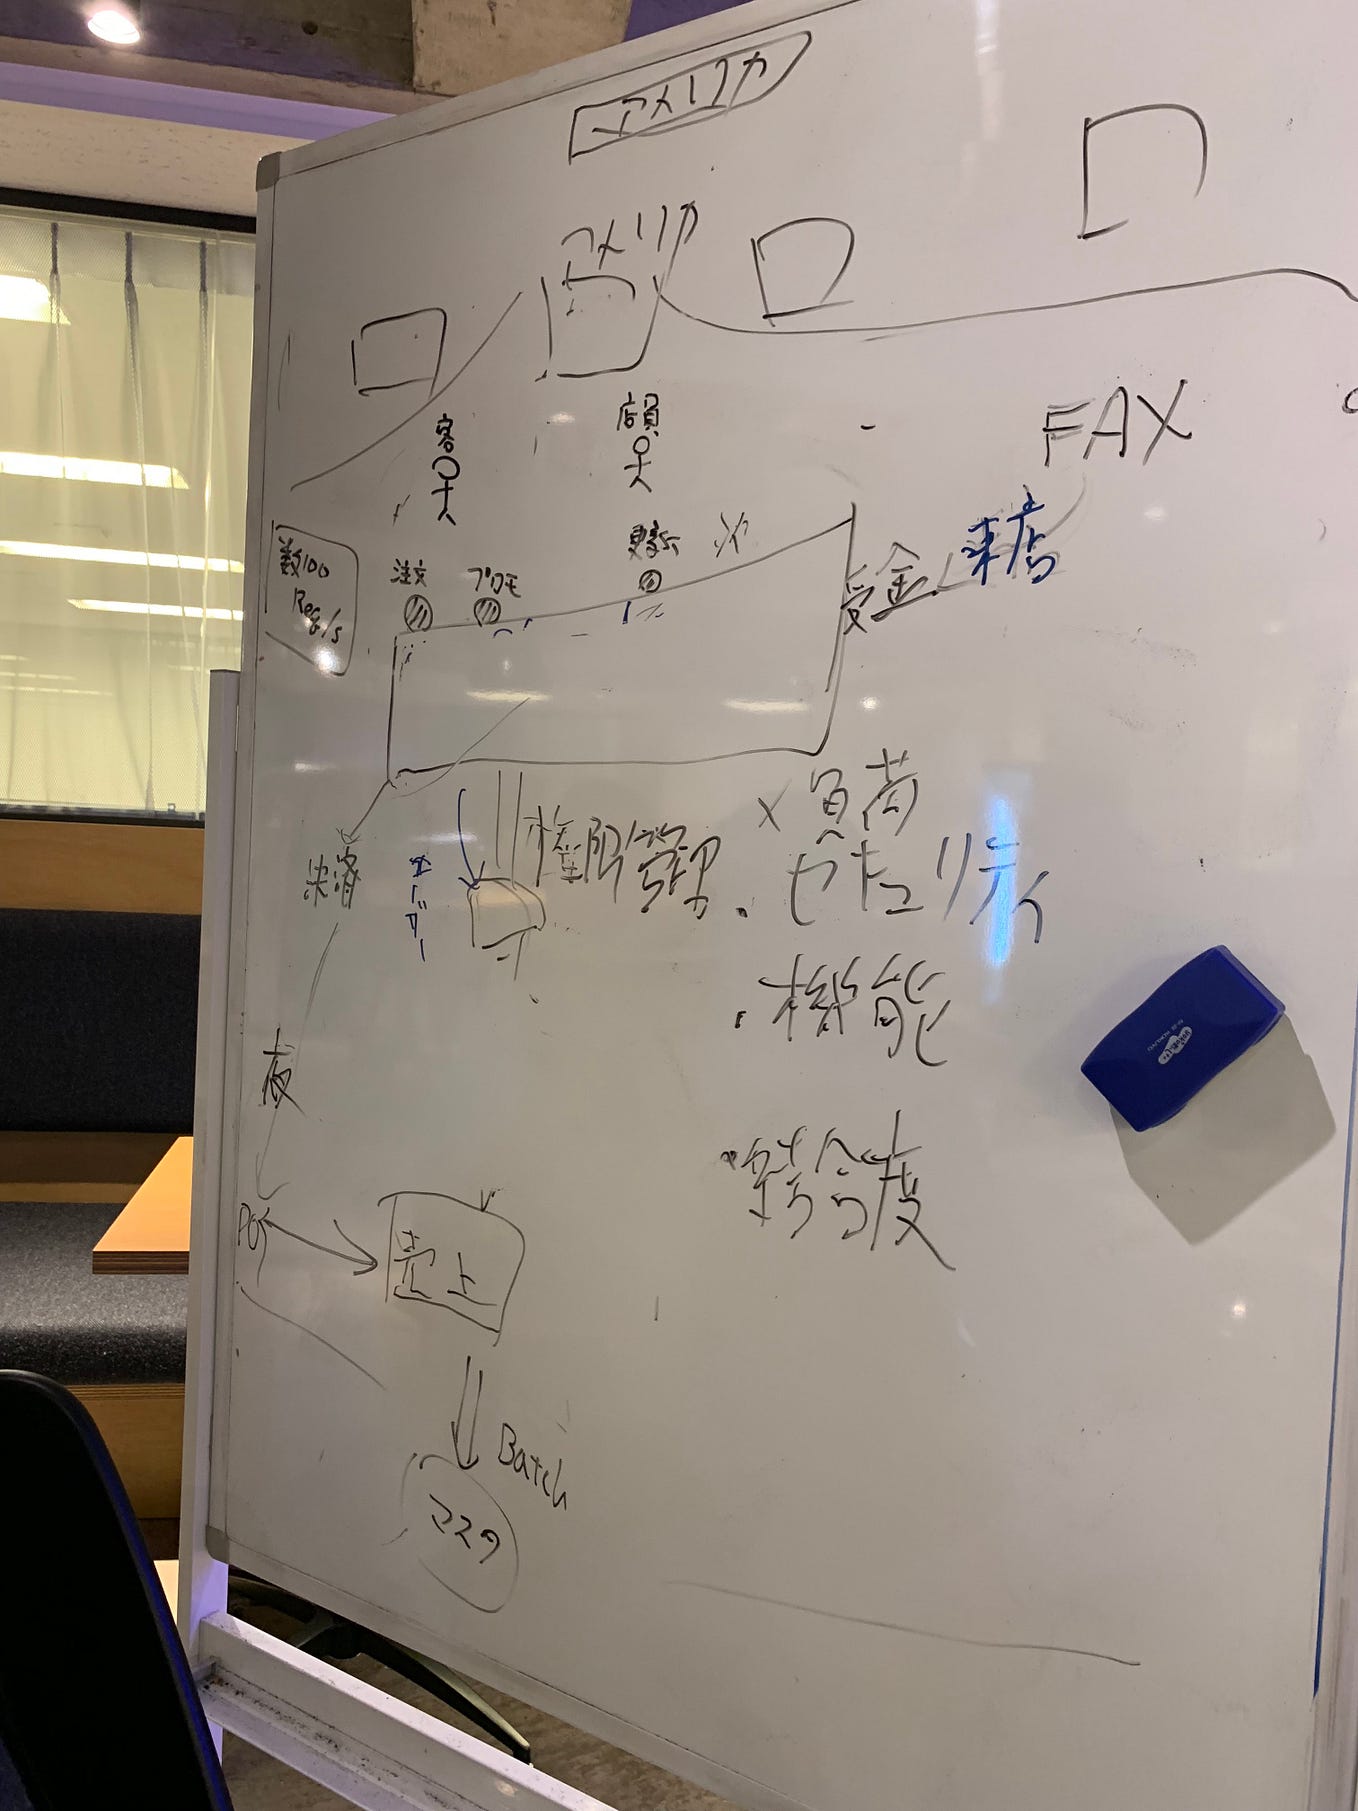 アメリカ
アメリカ
客
店員
FAX
数100
Req/s
注文
プロモ
更新
受金
来店
決済
オーダー
権限管理
×負荷
・セキュリティ
・機能
・整合度
夜
POS
売上
Batch
マスタ